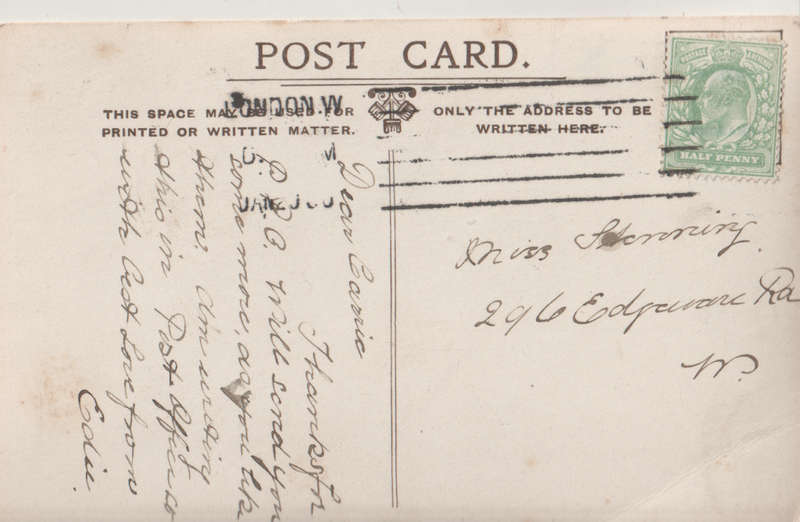 POST CARD.
THIS SPACE MAY BE USED FOR
PRINTED OR WRITTEN MATTER.
ONLY THE ADDRESS TO BE
WRITTEN HERE.
LONDON W
HALF PENNY
Dear Carrie
Thanks for
P.P.C. Will send you
some more, as you like
them. Am writing
this in Post Office so
with best Love from
Edie.
Miss
296 Edgware Rd
W.